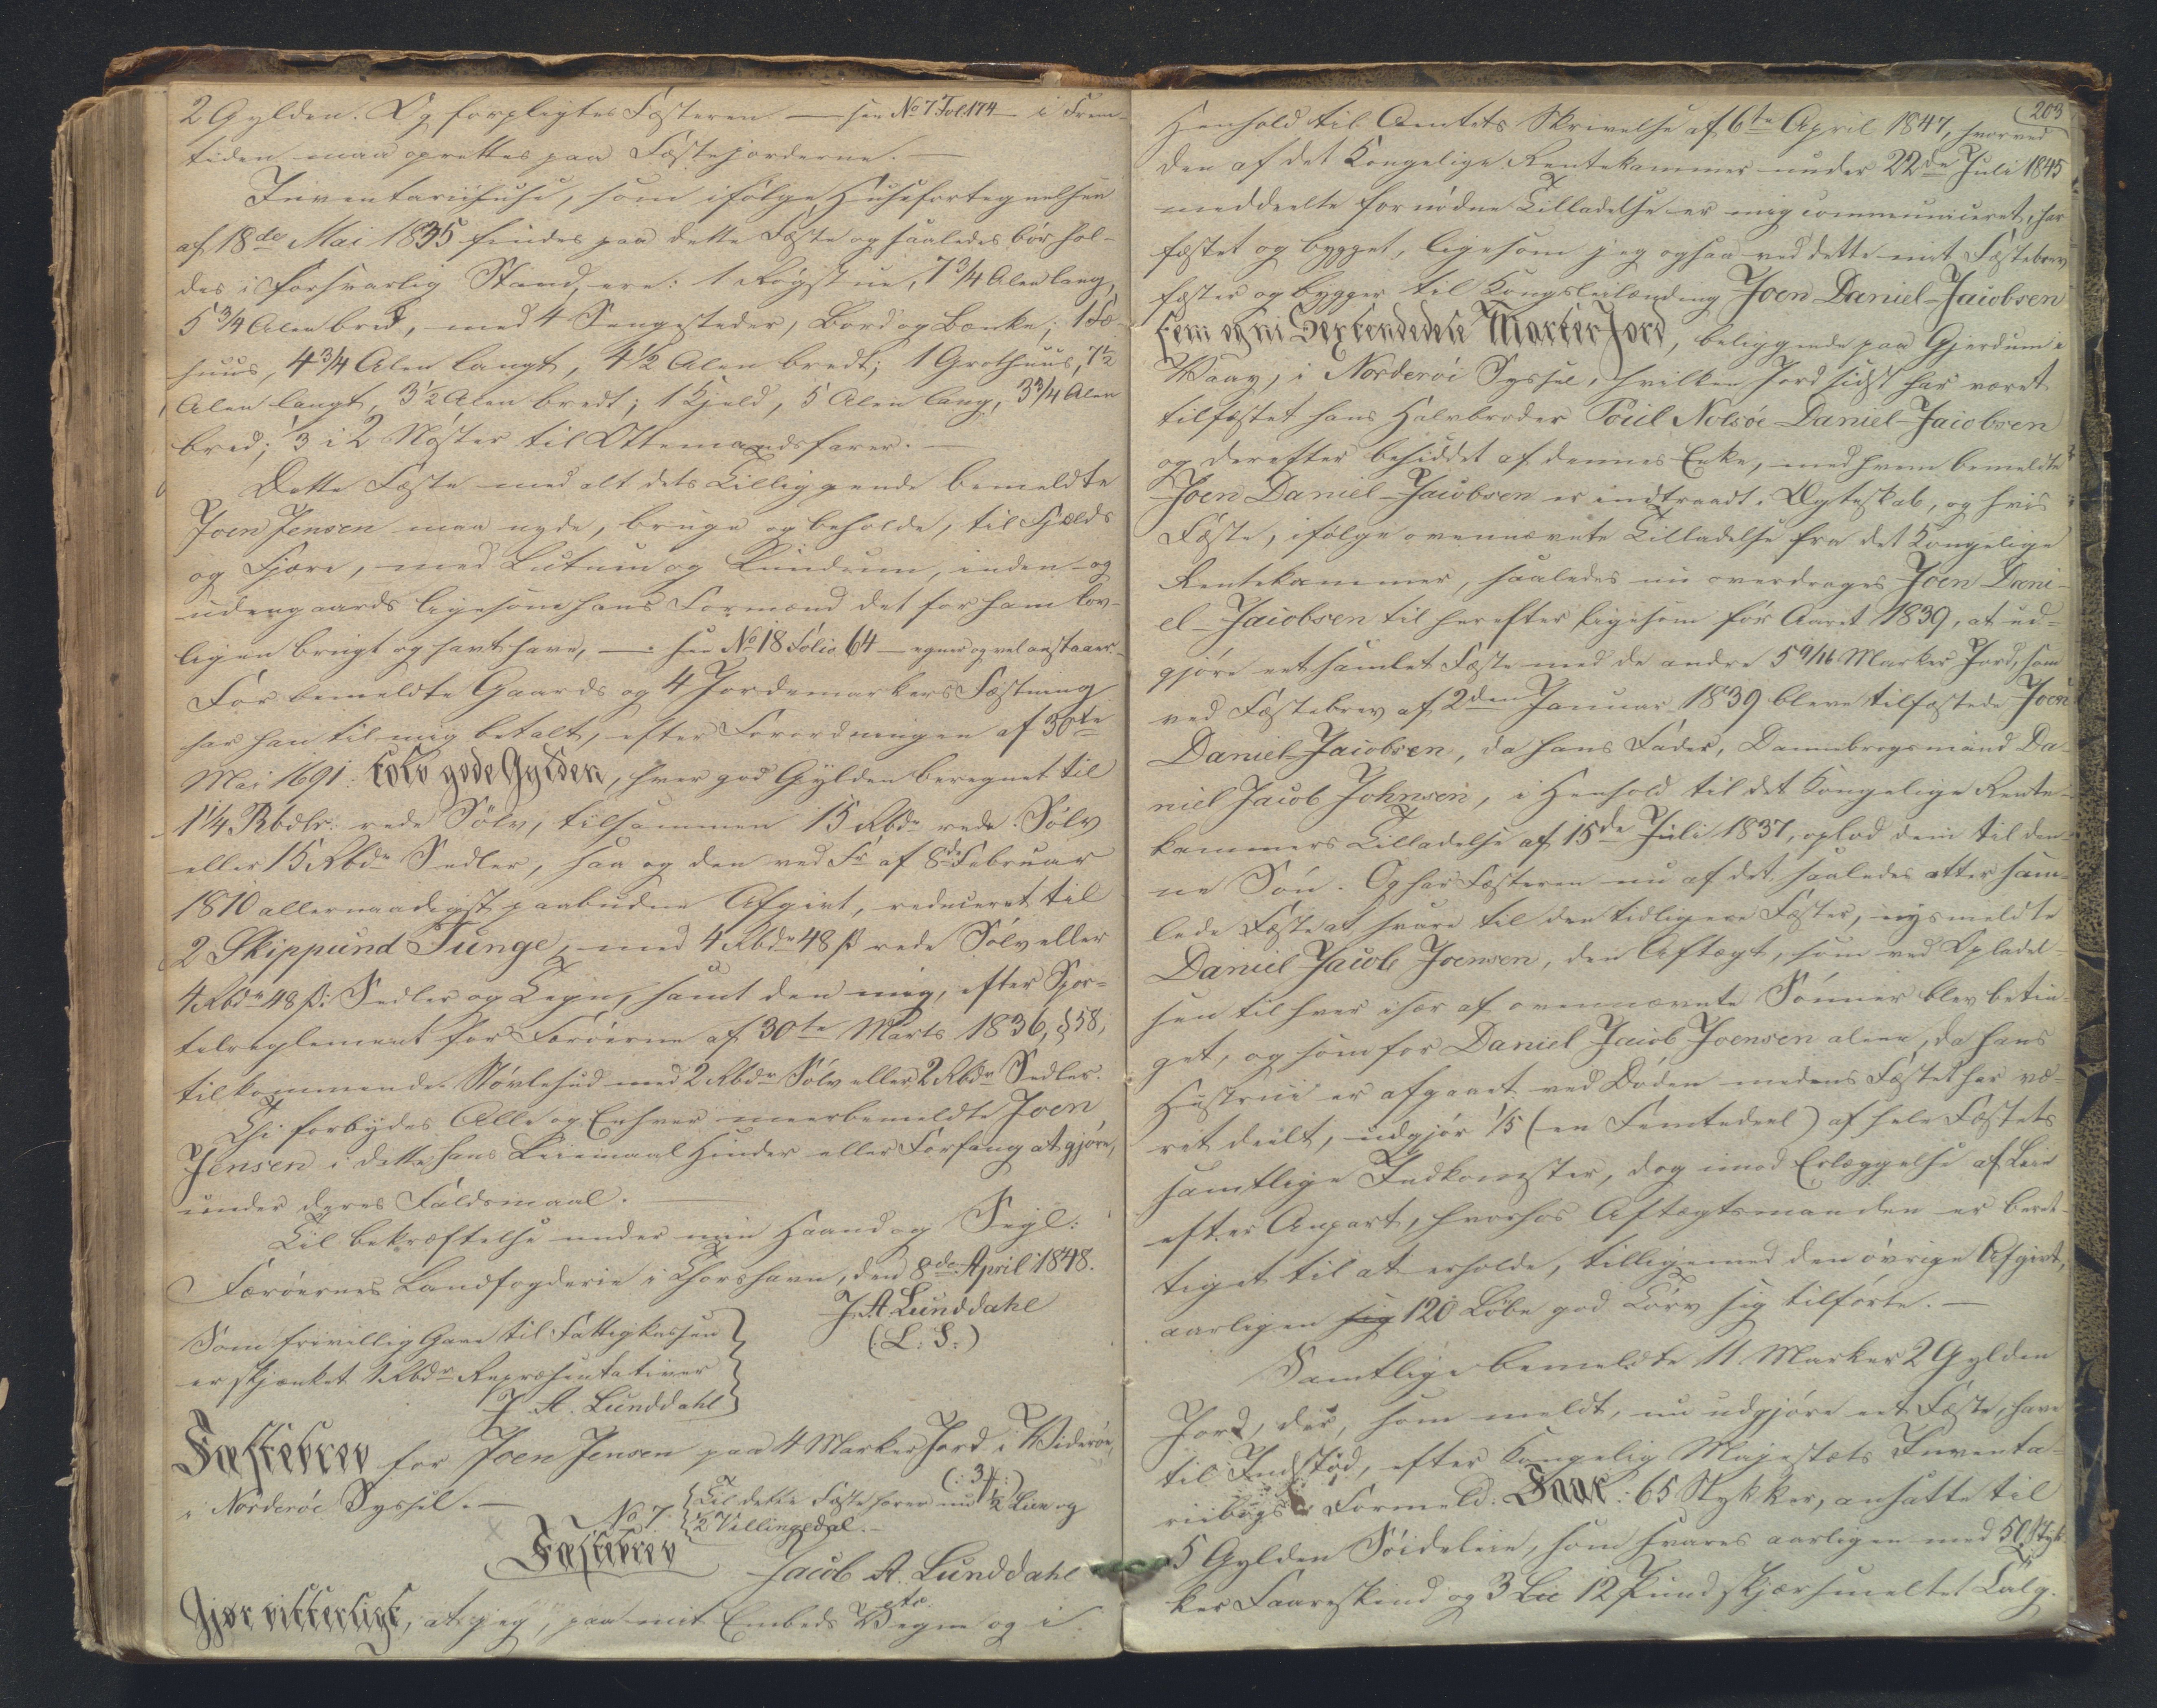 2 Gylden. Og forpligtes Fæsteren — see No 7 Fol. 174 — i Frem-
tiden maa oprettes paa Fæstejorderne. —
Inventariihuse, som ifølge Husefortegnelsen
af 18de Mai 1835 findes paa dette Fæste og saaledes bør hol-
des i forsvarlig Stand, ere: 1 Røgstue, 7 3/4 Alen lang,
5 3/4 Alen bred, med 4 Sengesteder, Bord og Bænke; 1 Fæ-
huus, 4 3/4 Alen langt, 4 1/2 Alen bredt; 1 Grothuus, 7 1/2
Alen langt, 3 1/2 Alen bredt; 1 Hjeld, 5 Alen lang, 3 3/4 Alen
bred; 3 i 2 Nøster til Ottemandsfarer. —
Dette Fæste med alt dets Tilliggende bemeldte
Joen Jensen maa nyde, bruge og beholde, til Fjælds
og Fjære, med Lutum og Lundum, inden- og
udengaards ligesom hans Formænd det før ham lov-
ligen brugt og havt have, — see No 18 Folio 64 — egner og vel anstaaer. —
For bemeldte Gaards og 4 Jordemarkers Fæstning
har han til mig betalt, efter Forordningen af 30te
Mai 1691. tolv gode Gylden, hver god Gylden beregnet til
1 1/4 Rbdlr: rede Sølv, tilsammen 15 Rbdr rede Sølv
eller 15 Rbdr Sedler, saa og den ved Fr af 8de Februar
1810 allernaadigst paabudne Afgivt, reduceret til
2 Skippund Tunge, med 4 Rbdr 48 ß rede Sølv eller
4 Rbdr 48 ß: Sedler og Tegn, samt den mig, efter Spor-
telreglement for Færøerne af 30te Marts 1836, § 58,
tilkommende Støvlehud med 2 Rbdr Sølv eller 2 Rbdr Sedler.
Thi forbydes Alle og Enhver meerbemeldte Joen
Jensen i dette hans Leiemaal Hinder eller Forfang at gjøre,
under deres Faldsmaal. —
Til bekræftelse under min Haand og Segl:
Færøernes Landfogderie i Thorshavn, den 8de April 1848.
J. A. Lunddahl
(L: S:)
Som frivillig Gave til Fattigkassen
er skjænket 1 Rbdr Repræsentativer
J. A. Lunddahl
Fæstebrev for Joen Jensen paa 4 Marker Jord i Viderøe,
i Norderøe Syssel. —
(: 3 ß :)
Til dette Fæste hører nu 1/2 Lien og
1/2 Villingedal. —
No 7.
Fæstebrev
Jacob A. Lunddahl
etc.
Gjør vitterligt, at jeg, paa mit Embeds Vegne og i
203
Henhold til Amtets Skrivelse af 6te April 1847, hvorved
den af det Kongelige Rentekammer under 22de Juli 1845
meddeelte fornødne Tilladelse er mig communiceret, har
fæstet og bygget, ligesom jeg ogsaa ved dette mit Fæstebrev
fæster og bygger til Kongsleilænding Joen Daniel-Jacobsen
fem og ni Sextendedele Marker Jord, beliggende paa Gjerdum i
Waag, i Norderøe Syssel, hvilken Jord sidst har været
tilfæstet hans Halvbroder Poul Nolsøe Daniel-Jacobsen
og derefter besiddet af dennes Enke, med hvem bemeldte
Joen Daniel-Jacobsen er indtraadt i Ægteskab, og hvis
Fæste, ifølge ovennævnte Tilladelse fra det Kongelige
Rentekammer, saaledes nu overdrages Joen Dani-
el-Jacobsen til herefter ligesom før Aaret 1839, at ud-
gjøre eet samlet Fæste med de andre 5 9/16 Marker Jord, som
ved Fæstebrev af 2den Januar 1839 bleve tilfæstede Joen
Daniel-Jacobsen, da hans Fader, Dannebrogsmand Da-
niel Jacob Johnsen, i Henhold til det Kongelige Rente-
kammers Tilladelse af 15de Juli 1837, oplod dem til den-
ne Søn. Og har Fæsteren nu af det saaledes atter sam-
lede Fæste at svare til den tidligere Fæster, nysmeldte
Daniel Jacob Joensen, den Aftægt, som ved Opladel-
sen til hver især af ovennævnte Sønner blev betin-
get, og som for Daniel Jacob Joensen alene, da hans
Hustrue er afgaaet ved Døden medens Fæstet har væ-
ret deelt, udgjør 1/5 (en Femtedeel) af hele Fæstets
samtlige Indkomster, dog imod Erlæggelse af Leie
efter Anpart, hvorhos Aftægtsmanden er beret-
tiget til at erholde, tilligemed den øvrige Afgivt,
aarligen sig 120 Løbe god Tørv sig tilførte. —
Samtlige bemeldte 11 Marker 2 Gylden
Jord, der, som meldt, nu udgjøre eet Fæste, have
til Indstød, efter Kongelig Majestæts Inventa-
riibogs Formeld: Faar: 65 Stykker, ansatte til
5 Gylden Søideleie, som svares aarligen med 50 Styk-
ker Faareskind og 3 Lee 12 Pund skjærsmeltet Talg.